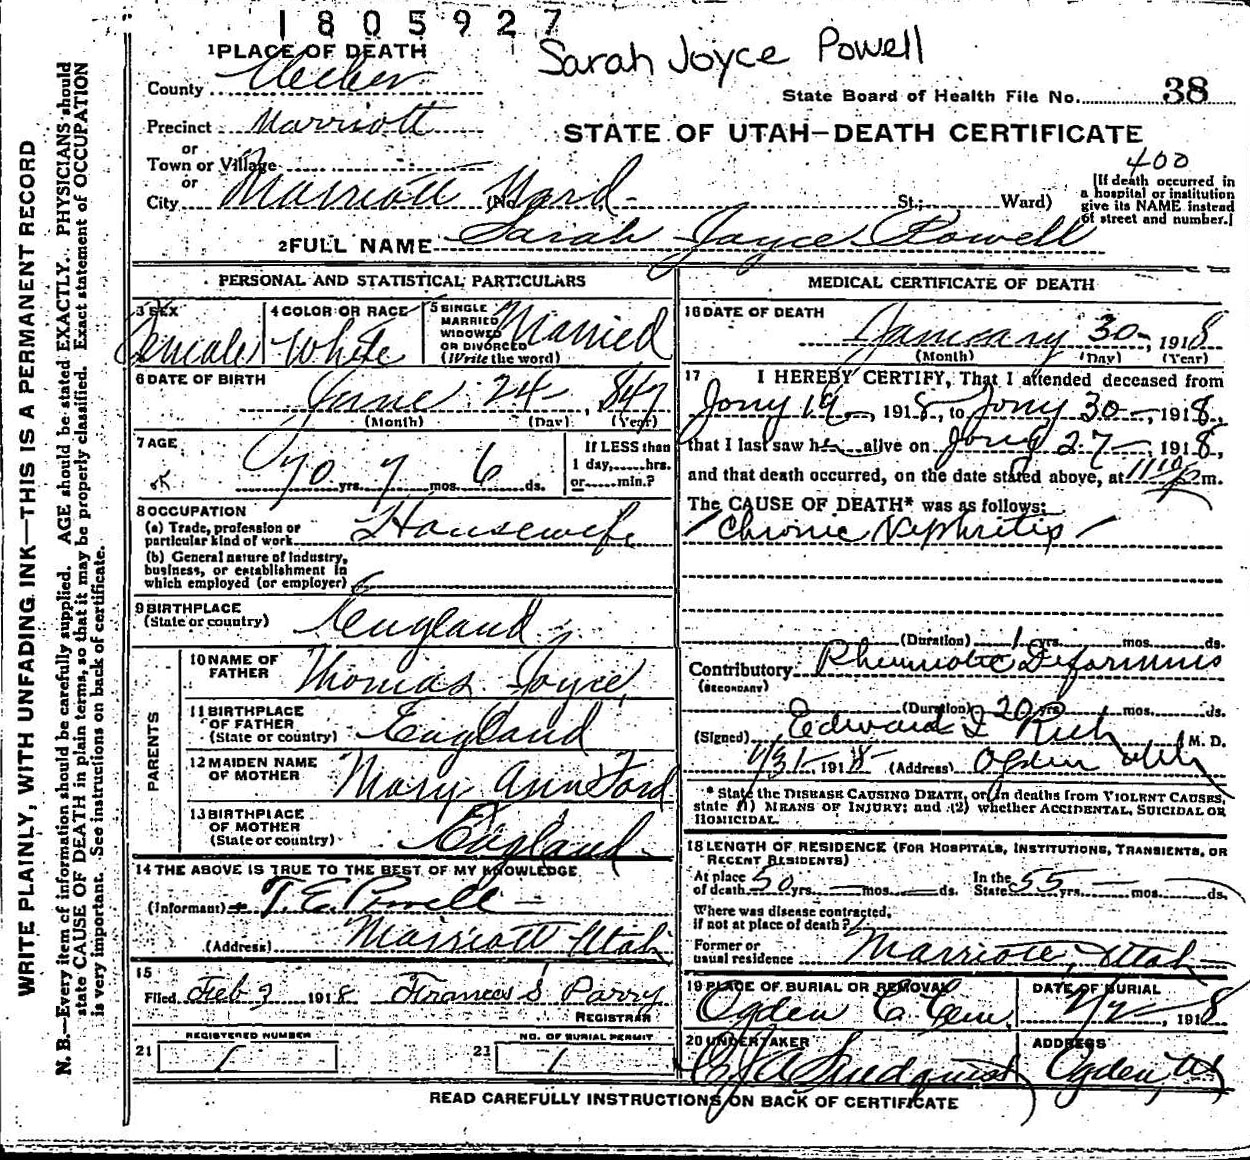 1805927
Sarah Joyce Powell
1 PLACE OF DEATH
County Weber
State Board of Health File No. 38
Precinct Marriott
STATE OF UTAH—DEATH CERTIFICATE
or
Town or Village
or
400
City Marriott Ward (No. St.; Ward)
[If death occurred in
a hospital or institution
give its NAME instead
of street and number.]
2 FULL NAME Sarah Joyce Powell
PERSONAL AND STATISTICAL PARTICULARS
3 SEX Female
4 COLOR OR RACE White
5 SINGLE
MARRIED
WIDOWED
OR DIVORCED
(Write the word) Married
6 DATE OF BIRTH
June 24, 1847
(Month) (Day) (Year)
7 AGE
70 yrs. 7 mos. 6 ds.
If LESS than
1 day, hrs.
or min.?
8 OCCUPATION
(a) Trade, profession or
particular kind of work Housewife
(b) General nature of industry,
business, or establishment in
which employed (or employer)
9 BIRTHPLACE
(State or country) England
PARENTS
10 NAME OF
FATHER Thomas Joyce
11 BIRTHPLACE
OF FATHER
(State or country) England
12 MAIDEN NAME
OF MOTHER Mary Ann Ford
13 BIRTHPLACE
OF MOTHER
(State or country) England
14 THE ABOVE IS TRUE TO THE BEST OF MY KNOWLEDGE
(Informant) T. E. Powell
(Address) Marriott Utah
15
Filed Feb 2 1918 Frances S Parry
REGISTRAR
REGISTERED NUMBER
21 1
NO. OF BURIAL PERMIT
22 1
MEDICAL CERTIFICATE OF DEATH
16 DATE OF DEATH
January 30, 1918
(Month) (Day) (Year)
17 I HEREBY CERTIFY, That I attended deceased from
Jany 19, 1918, to Jany 30, 1918,
that I last saw her alive on Jany 27, 1918,
and that death occurred, on the date stated above, at 11 10 p m.
The CAUSE OF DEATH* was as follows:
Chronic Nephritis
(Duration) 1 yrs. mos. ds.
Contributory Rheumatic Deformans
(SECONDARY)
(Duration) 20 yrs. mos. ds.
(Signed) Edward I Rich M. D.
1/31 1918 (Address) Ogden Utah
* State the DISEASE CAUSING DEATH, or, in deaths from VIOLENT CAUSES,
state (1) MEANS OF INJURY; and (2) whether ACCIDENTAL, SUICIDAL OR
HOMICIDAL.
18 LENGTH OF RESIDENCE (FOR HOSPITALS, INSTITUTIONS, TRANSIENTS, OR
RECENT RESIDENTS)
At place
of death 50 yrs. mos. ds. In the
State 55 yrs. ds.
Where was disease contracted,
if not at place of death?
Former or
usual residence Marriott, Utah
19 PLACE OF BURIAL OR REMOVAL
Ogden C Cem.
DATE OF BURIAL
2/2, 1918
20 UNDERTAKER
ADDRESS
Ogden, Ut
READ CAREFULLY INSTRUCTIONS ON BACK OF CERTIFICATE
WRITE PLAINLY, WITH UNFADING INK—THIS IS A PERMANENT RECORD
N. B.—Every item of information should be carefully supplied. AGE should be stated EXACTLY. PHYSICIANS should
state CAUSE OF DEATH in plain terms, so that it may be properly classified. Exact statement of OCCUPATION
is very important. See instructions on back of certificate.